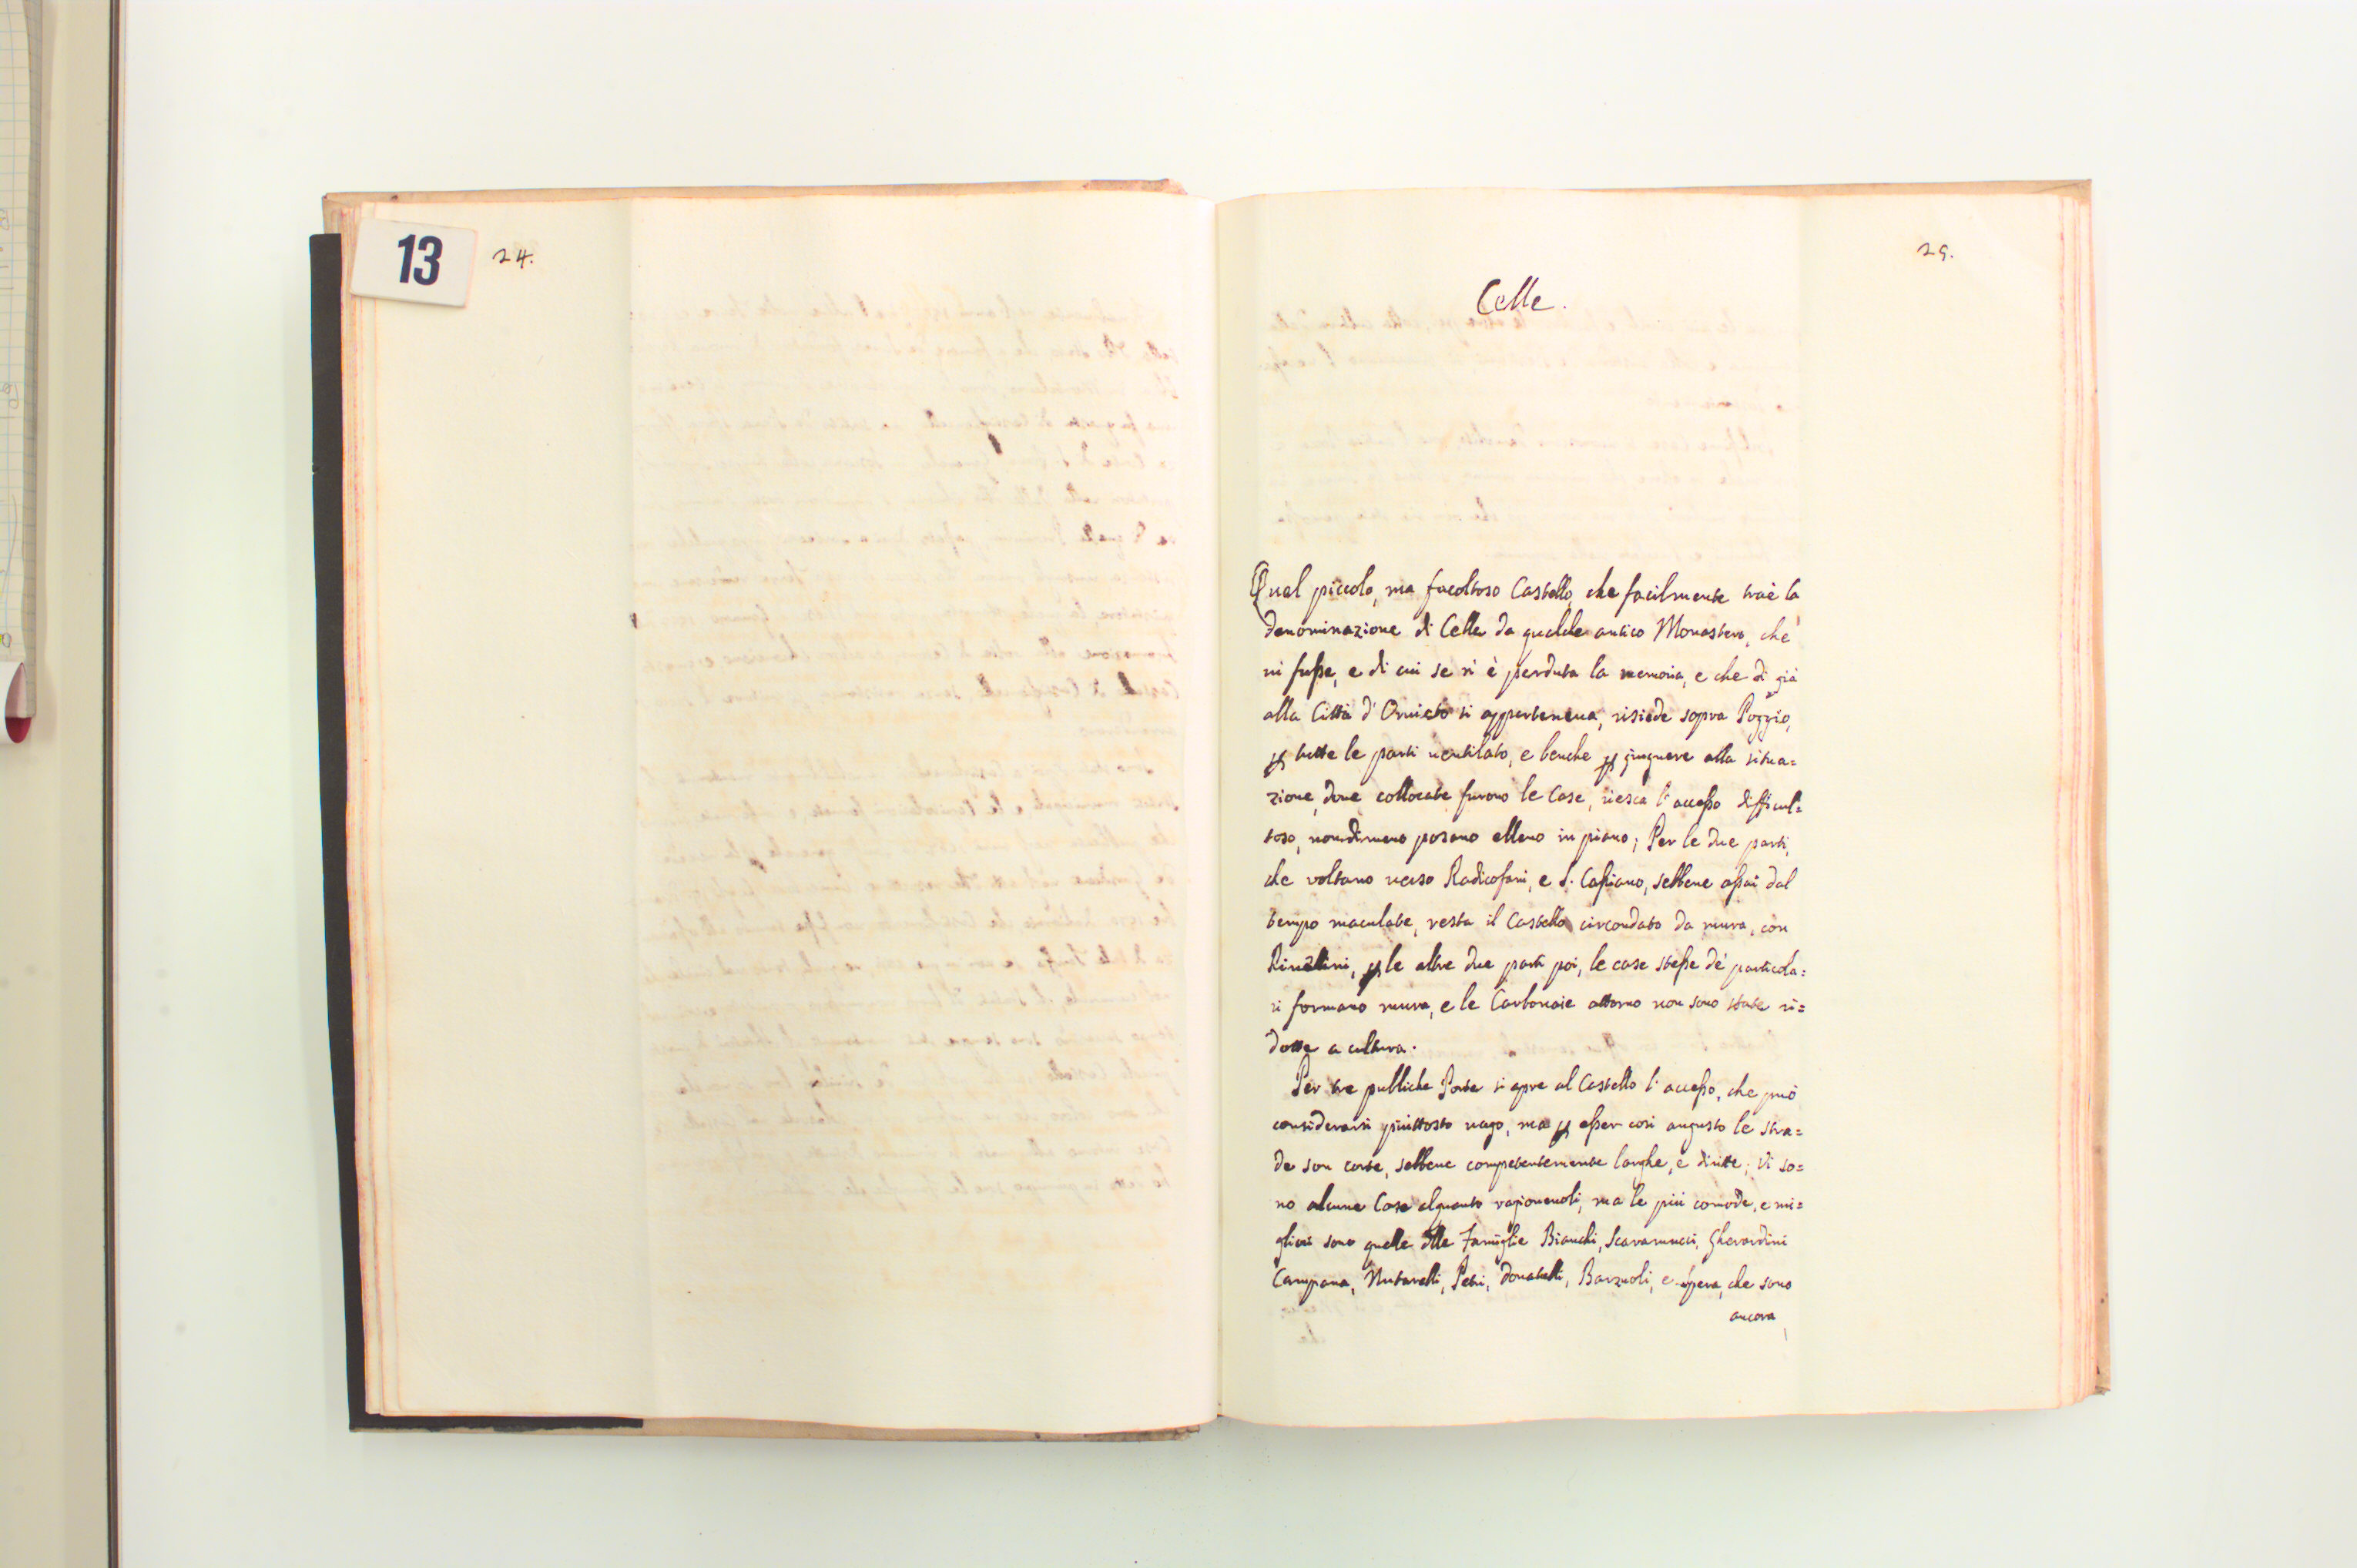 13
24.
25.
Celle.
Quel piccolo, ma facoltoso Castello, che facilmente traè la
denominazione di Celle da qualche antico Monastero, che
vi fusse, e di cui se n'è perduta la memoria, e che di già
alla Città d'Orvieto si apparteneva, risiede sopra Poggio,
p tutte le parti ventilato, e benche p giugnere alla situa=
zione, dove collocate furono le Case, riesca l'accesso difficul=
toso, nondimeno posano elleno in piano; Per le due parti,
che voltano verso Radicofani, e S. Casciano, sebbene assai dal
tempo maculate, resta il Castello circondato da mura, con
Rivellini, p le altre due parti poi, le case stesse de' particola=
ri formano mura, e le Carbonaie attorno non sono state ri=
dotte a cultura.
Per tre pubbliche Porte si apre al Castello l'accesso, che può
considerarsi piuttosto vago, ma p esser così angusto le stra=
de son corte, sebbene competentemente larghe, e diritte; Vi so=
no alcune Case alquanto ragionevoli, ma le più comode, e mi=
gliori sono quelle dlle Famiglie Bianchi, Scaramucci, Gherardini
Campana, Mutarelli, Petri, Donatelli, Barzuoli, e che sono
ancora